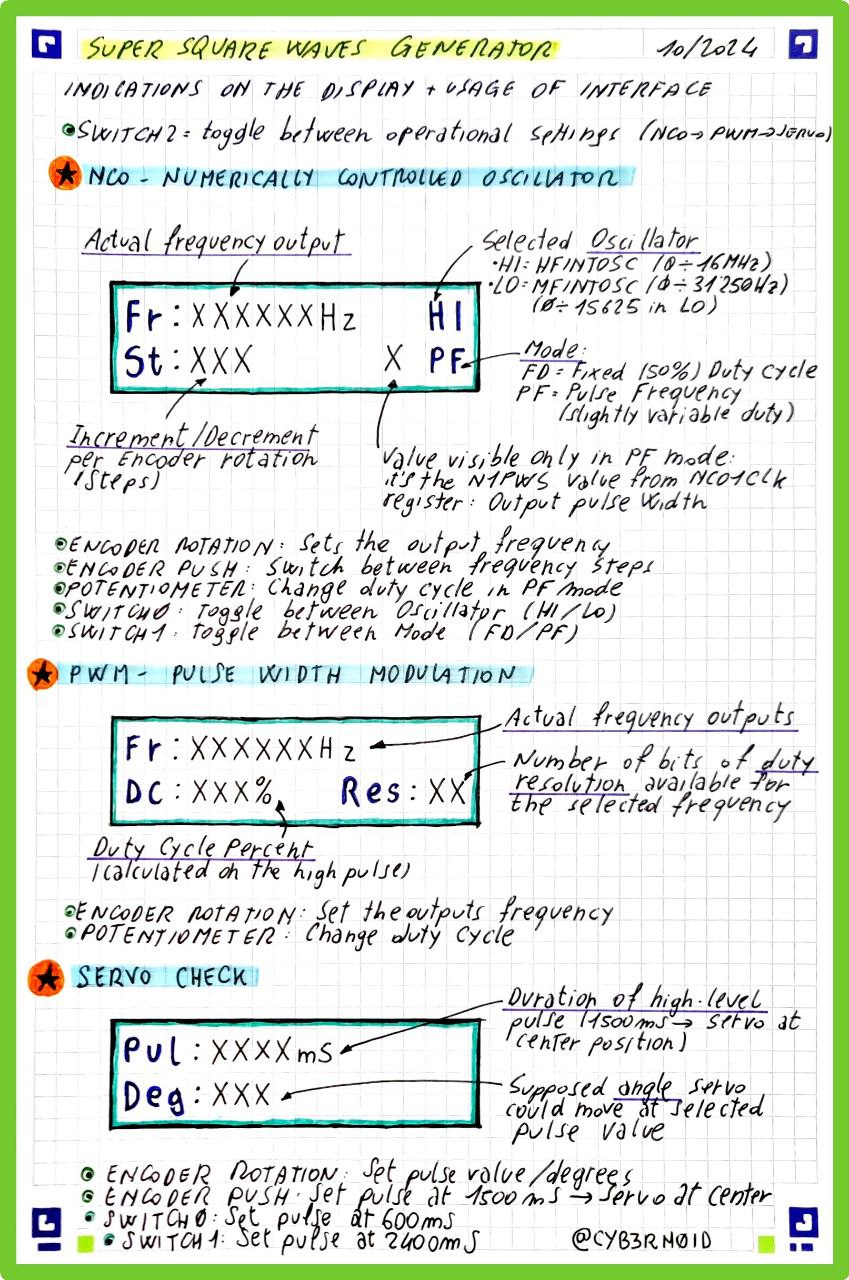 SUPER SQUARE WAVES GENERATOR 10/2024
INDICATIONS ON THE DISPLAY + USAGE OF INTERFACE
SWITCH2 = toggle between operational settings (NCO→PWM→SERVO)
★ NCO - NUMERICALLY CONTROLLED OSCILLATOR
Actual frequency output
Selected Oscillator
•HI: HFINTOSC (0÷16MHz)
•LO: MFINTOSC (0÷31250Hz)
(0÷15625 in LO)
Fr: XXXXXXHz HI
St: XXX X PF
Mode:
FD = Fixed (50%) Duty Cycle
PF = Pulse Frequency
(slightly variable duty)
Increment/Decrement
per Encoder rotation
(Steps)
Value visible only in PF mode:
it's the N1PWS value from NCO1CLK
register: Output pulse Width
ENCODER ROTATION: Sets the output frequency
ENCODER PUSH: Switch between frequency steps
POTENTIOMETER: Change duty cycle in PF mode
SWITCH0: Toggle between Oscillator (HI/LO)
SWITCH1: Toggle between Mode (FD/PF)
★ PWM - PULSE WIDTH MODULATION
Actual frequency outputs
Fr: XXXXXXHz
DC: XXX% Res: XX
Number of bits of duty
resolution available for
the selected frequency
Duty Cycle Percent
(calculated on the high pulse)
ENCODER ROTATION: Set the outputs frequency
POTENTIOMETER: Change duty cycle
★ SERVO CHECK
Duration of high-level
pulse (1500mS→ servo at
center position)
Pul: XXXXmS
Deg: XXX
Supposed angle servo
could move at selected
pulse value
ENCODER ROTATION: Set pulse value/degrees
ENCODER PUSH: Set pulse at 1500mS → Servo at center
SWITCH0: Set pulse at 600mS
SWITCH1: Set pulse at 2400mS @CYB3RN0ID